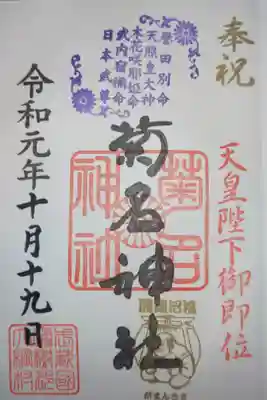 奉祝
天皇陛下御即位
誉田別命
天照皇大神
木花咲耶姫命
武内宿禰命
日本武尊
菊名神社
菊名
神社
令和元年十月十九日
がまんさま